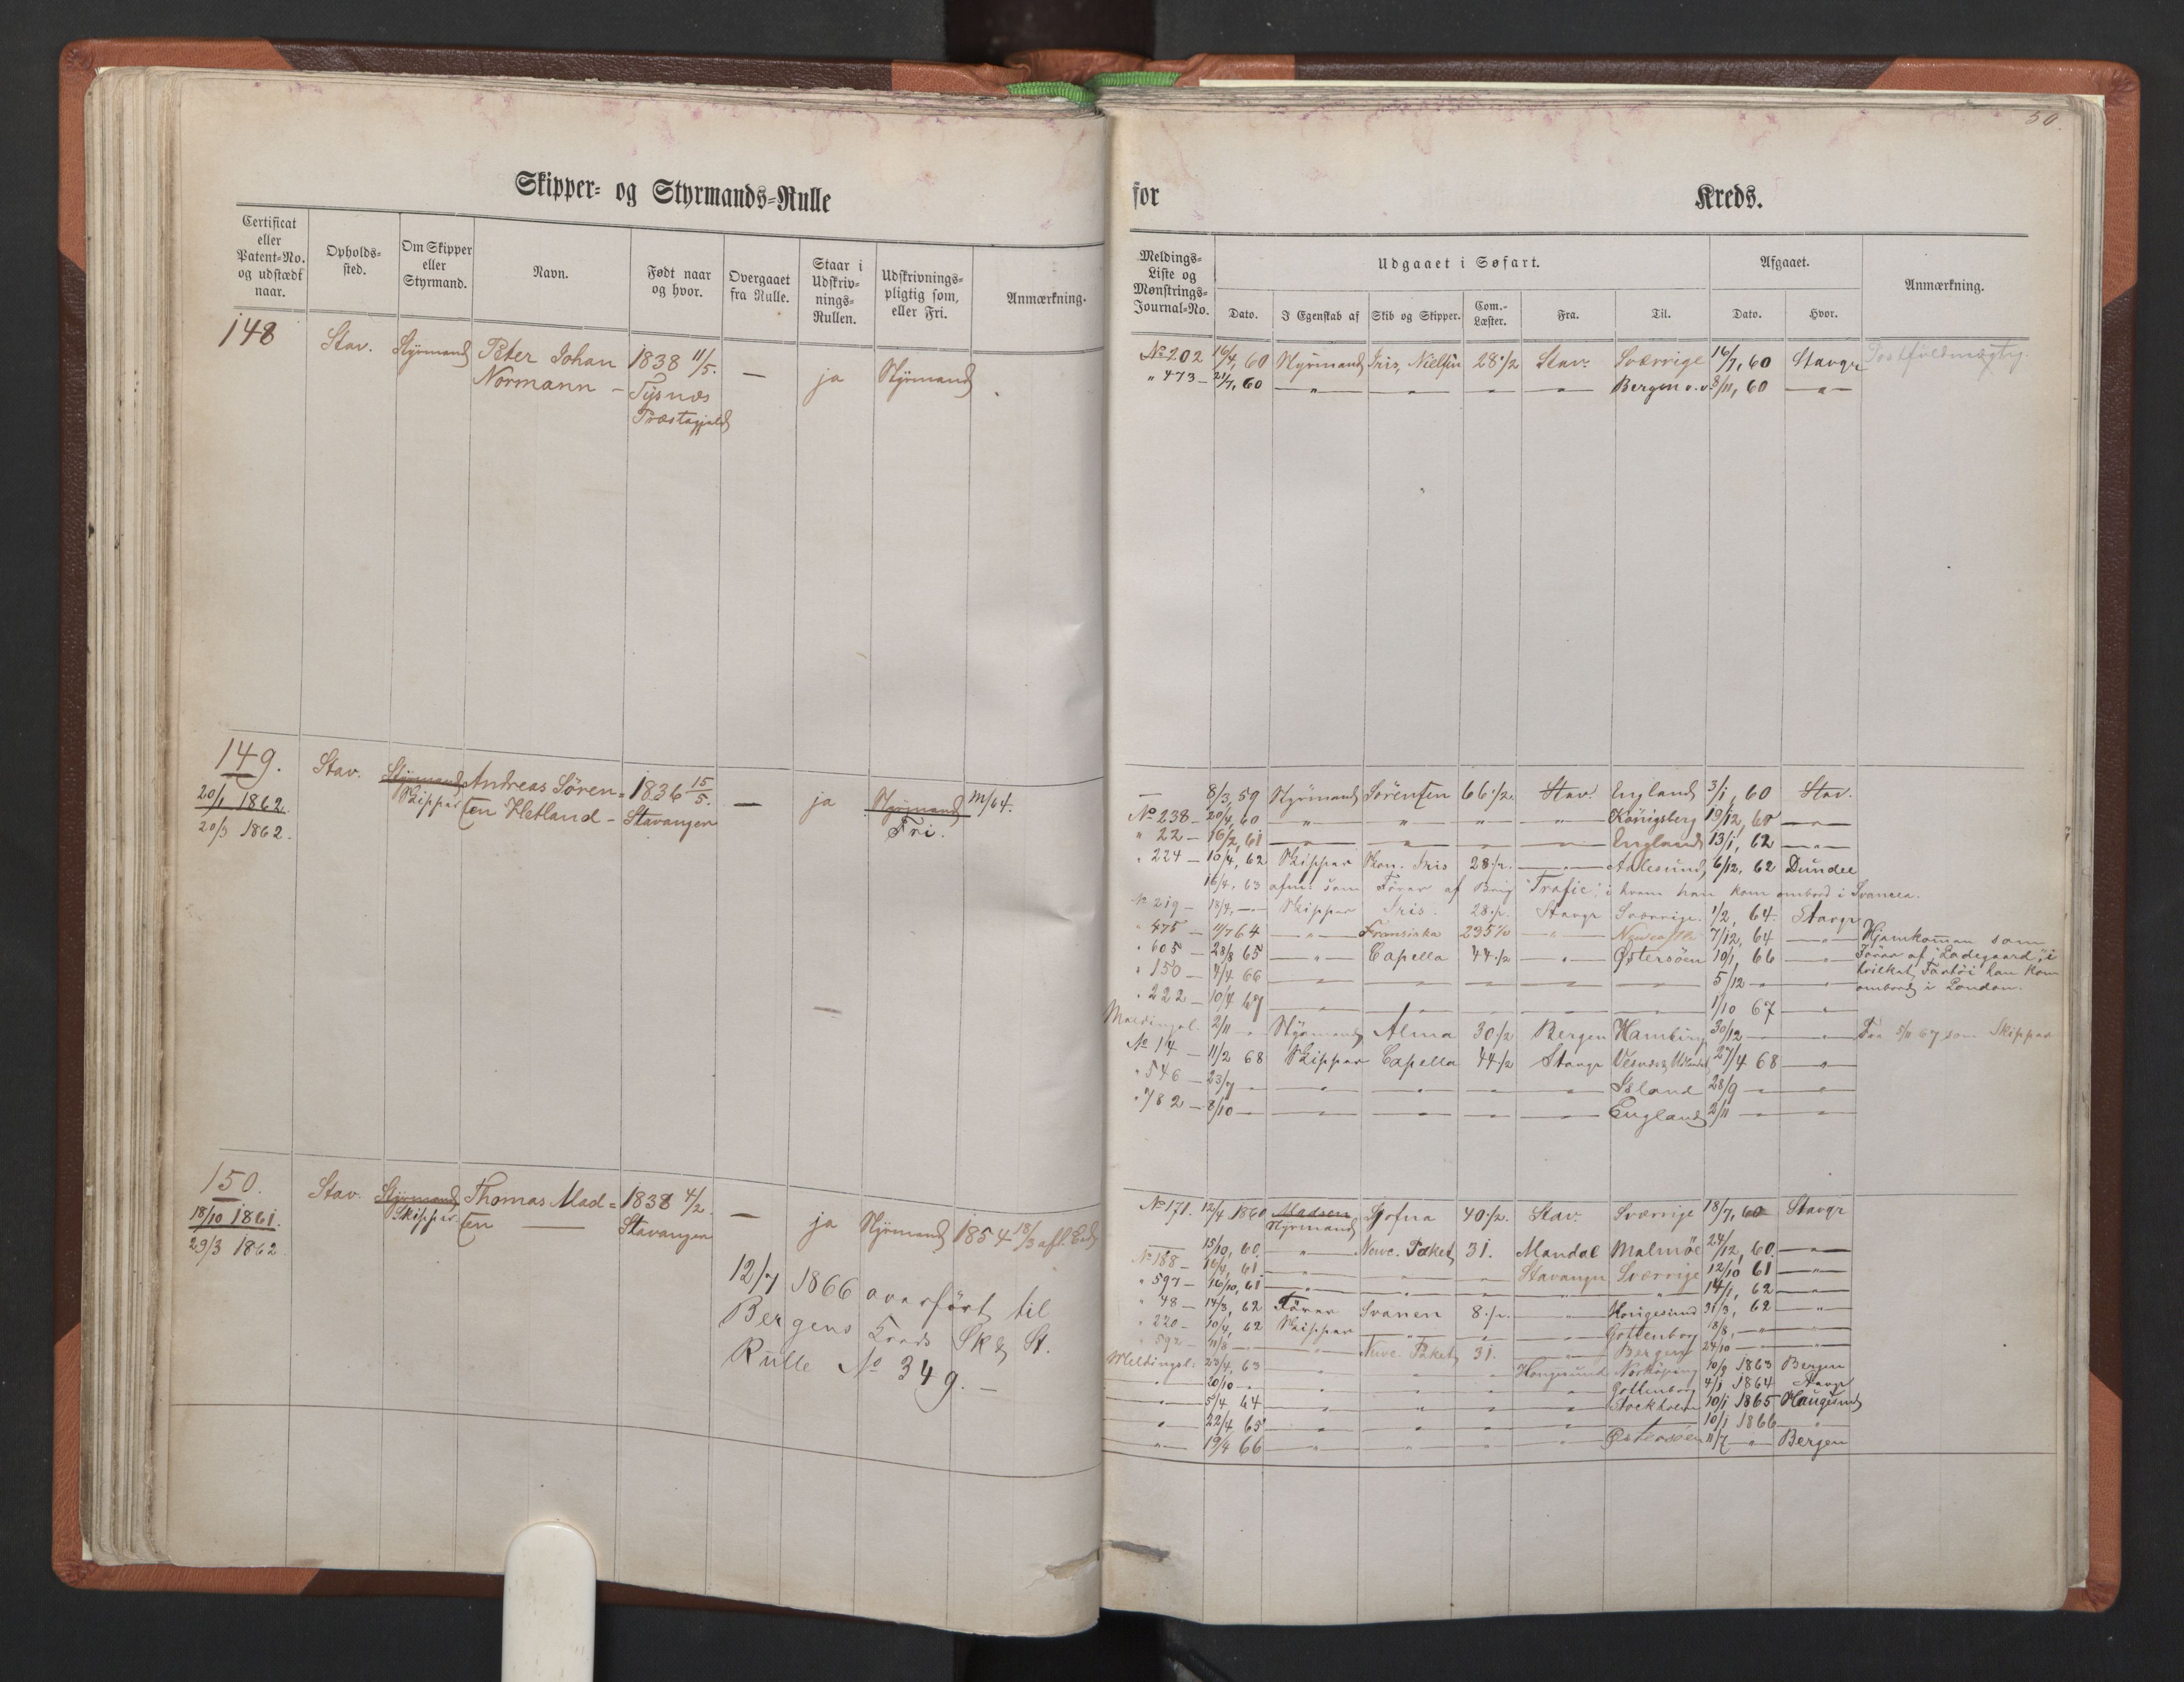 Skipper- og Styrmands-Rulle
Certificat eller Patent-No. og udstædt naar.
Opholds-sted.
Om Skipper eller Styrmand.
Navn.
Født naar og hvor.
Overgaaet fra Rulle.
Staar i Udskriv-nings-Rullen.
Udskrivnings-pligtig som, eller Fri.
Anmærkning.
148 Stav. Styrmand Peter Johan 1838 11/5. — ja Styrmand
Normann – Tysnæs
Præstegjeld
149. Stav. Styrmand Andreas Sören= 1836 15/5. — ja Styrmand
20/1 1862. Skipper sen Hetland – Stavanger Fri.
20/3 1862.
150. Stav. Styrmand Thomas Mad= 1838 4/2. — ja Styrmand 1854 18/3 afl. Ed
18/10 1861. Skipper sen — Stavanger
29/3 1862
12/7 1866 overført til
Bergens Kreds Sk & St.
Rulle No 349. –
50.
for Kreds.
Meldings-Liste og Mønstrings-Journal-No.
Udgaaet i Søfart.
Afgaaet.
Anmærkning.
Dato. I Egenskab af Skib og Skipper. Com.-Læster. Fra. Til. Dato. Hvor.
No 202 16/4, 60 Styrmand Iris, Nielsen 28 1/2 Stav. Sværrige 16/7, 60 Stavgr
" 473 – 21/7, 60 — " — — " — — " — — " — Bergen o.v. 8/11, 60 — " —
— 8/3, 59 Styrmand Sörensen 66 1/2. Stav. England 3/1, 60 Stav.
No 238 – 20/4, 60 " " " " Königsberg 19/12, 60 — " —
" 22 – 16/2, 61 — " — — " — — " — — " — England 13/1, 62 — " —
" 224 – 10/4, 62 Skipper Skon. Iris 28 — " — Aalesund, 6/12, 62 Dundee
16/4, 63 afm. som Förer af Brig "Trafic", i hvem han kom ombord i Svansea.
No 219 – 18/4, — " — Skipper Iris. 28 Stavgr Sværrige. 1/2, 64. Stavgr
" 475 – 11/7 64 — " — Fransiska 235 " Newcastle 7/12, 64 — " — Hjemkommen som
" 605 – 28/8 65 — " — Capella 44 1/2 — " — Østersöen 10/1, 66 — " — Förer af "Ladegaard", i
" 150 – 4/4 66 — " — — " — — " — — " — — " — 5/12 – " — " — hvilket Fartöi han kom
" 222 – 10/4 67 — " — — " — — " — — " — — " — 1/10 67 — " — ombord i London.
Meldingsl. 2/11 – " Styrmand Alma 30 1/2 Bergen Hamburg 30/12 — " — " — Fra 5/11 67 som Skipper
No 14 – 11/2 68 Skipper Capella 44 1/2 Stavgr 27/4 68 — " —
" 546 – 23/7 – " — " — — " — — " — — " — Island 28/9 — " — " —
" 782 – 8/10 – " — " — — " — — " — — " — England 2/11 — " — " —
No 171. 12/4 1860 Madsen 40 1/2. Stav. Sværrige 18/7, 60 Stavgr
Styrmand
15/10, 60. — " — Newc. Paket 31. Mandal Malmöe 24/12, 60. — " —
No 188 – 16/4, 61. — " — — " — — " — Stavanger Sværrige 12/10 61 — " —
" 597 – 16/10, 61 — " — — " — — " — — " — — " — 14/1, 62 — " —
" 48 – 14/3, 62 Förer Svanen 8 — " — Haugesund 31/3, 62 — " —
" 220 – 10/4, 62 Skipper — " — — " — — " — Gottenborg 18/8, – " — " —
" 592 – 11/8 – " — " — Newc. Paket 31. — " — Bergen 24/10 – " — " —
Meldingsl: 23/4, 63 " " " Haugesund Norköping 10/9 1863 Bergen
" 20/10 – " " " " " Gottenborg 4/1 1864 Stavgr
" 5/4 64 " " " " Stockholm 10/1 1865 Haugesund
" 22/4 65 " " " " — " — 10/1 1866 "
" 19/4 66 " " " " Østersöen 11/7 — " — Bergen